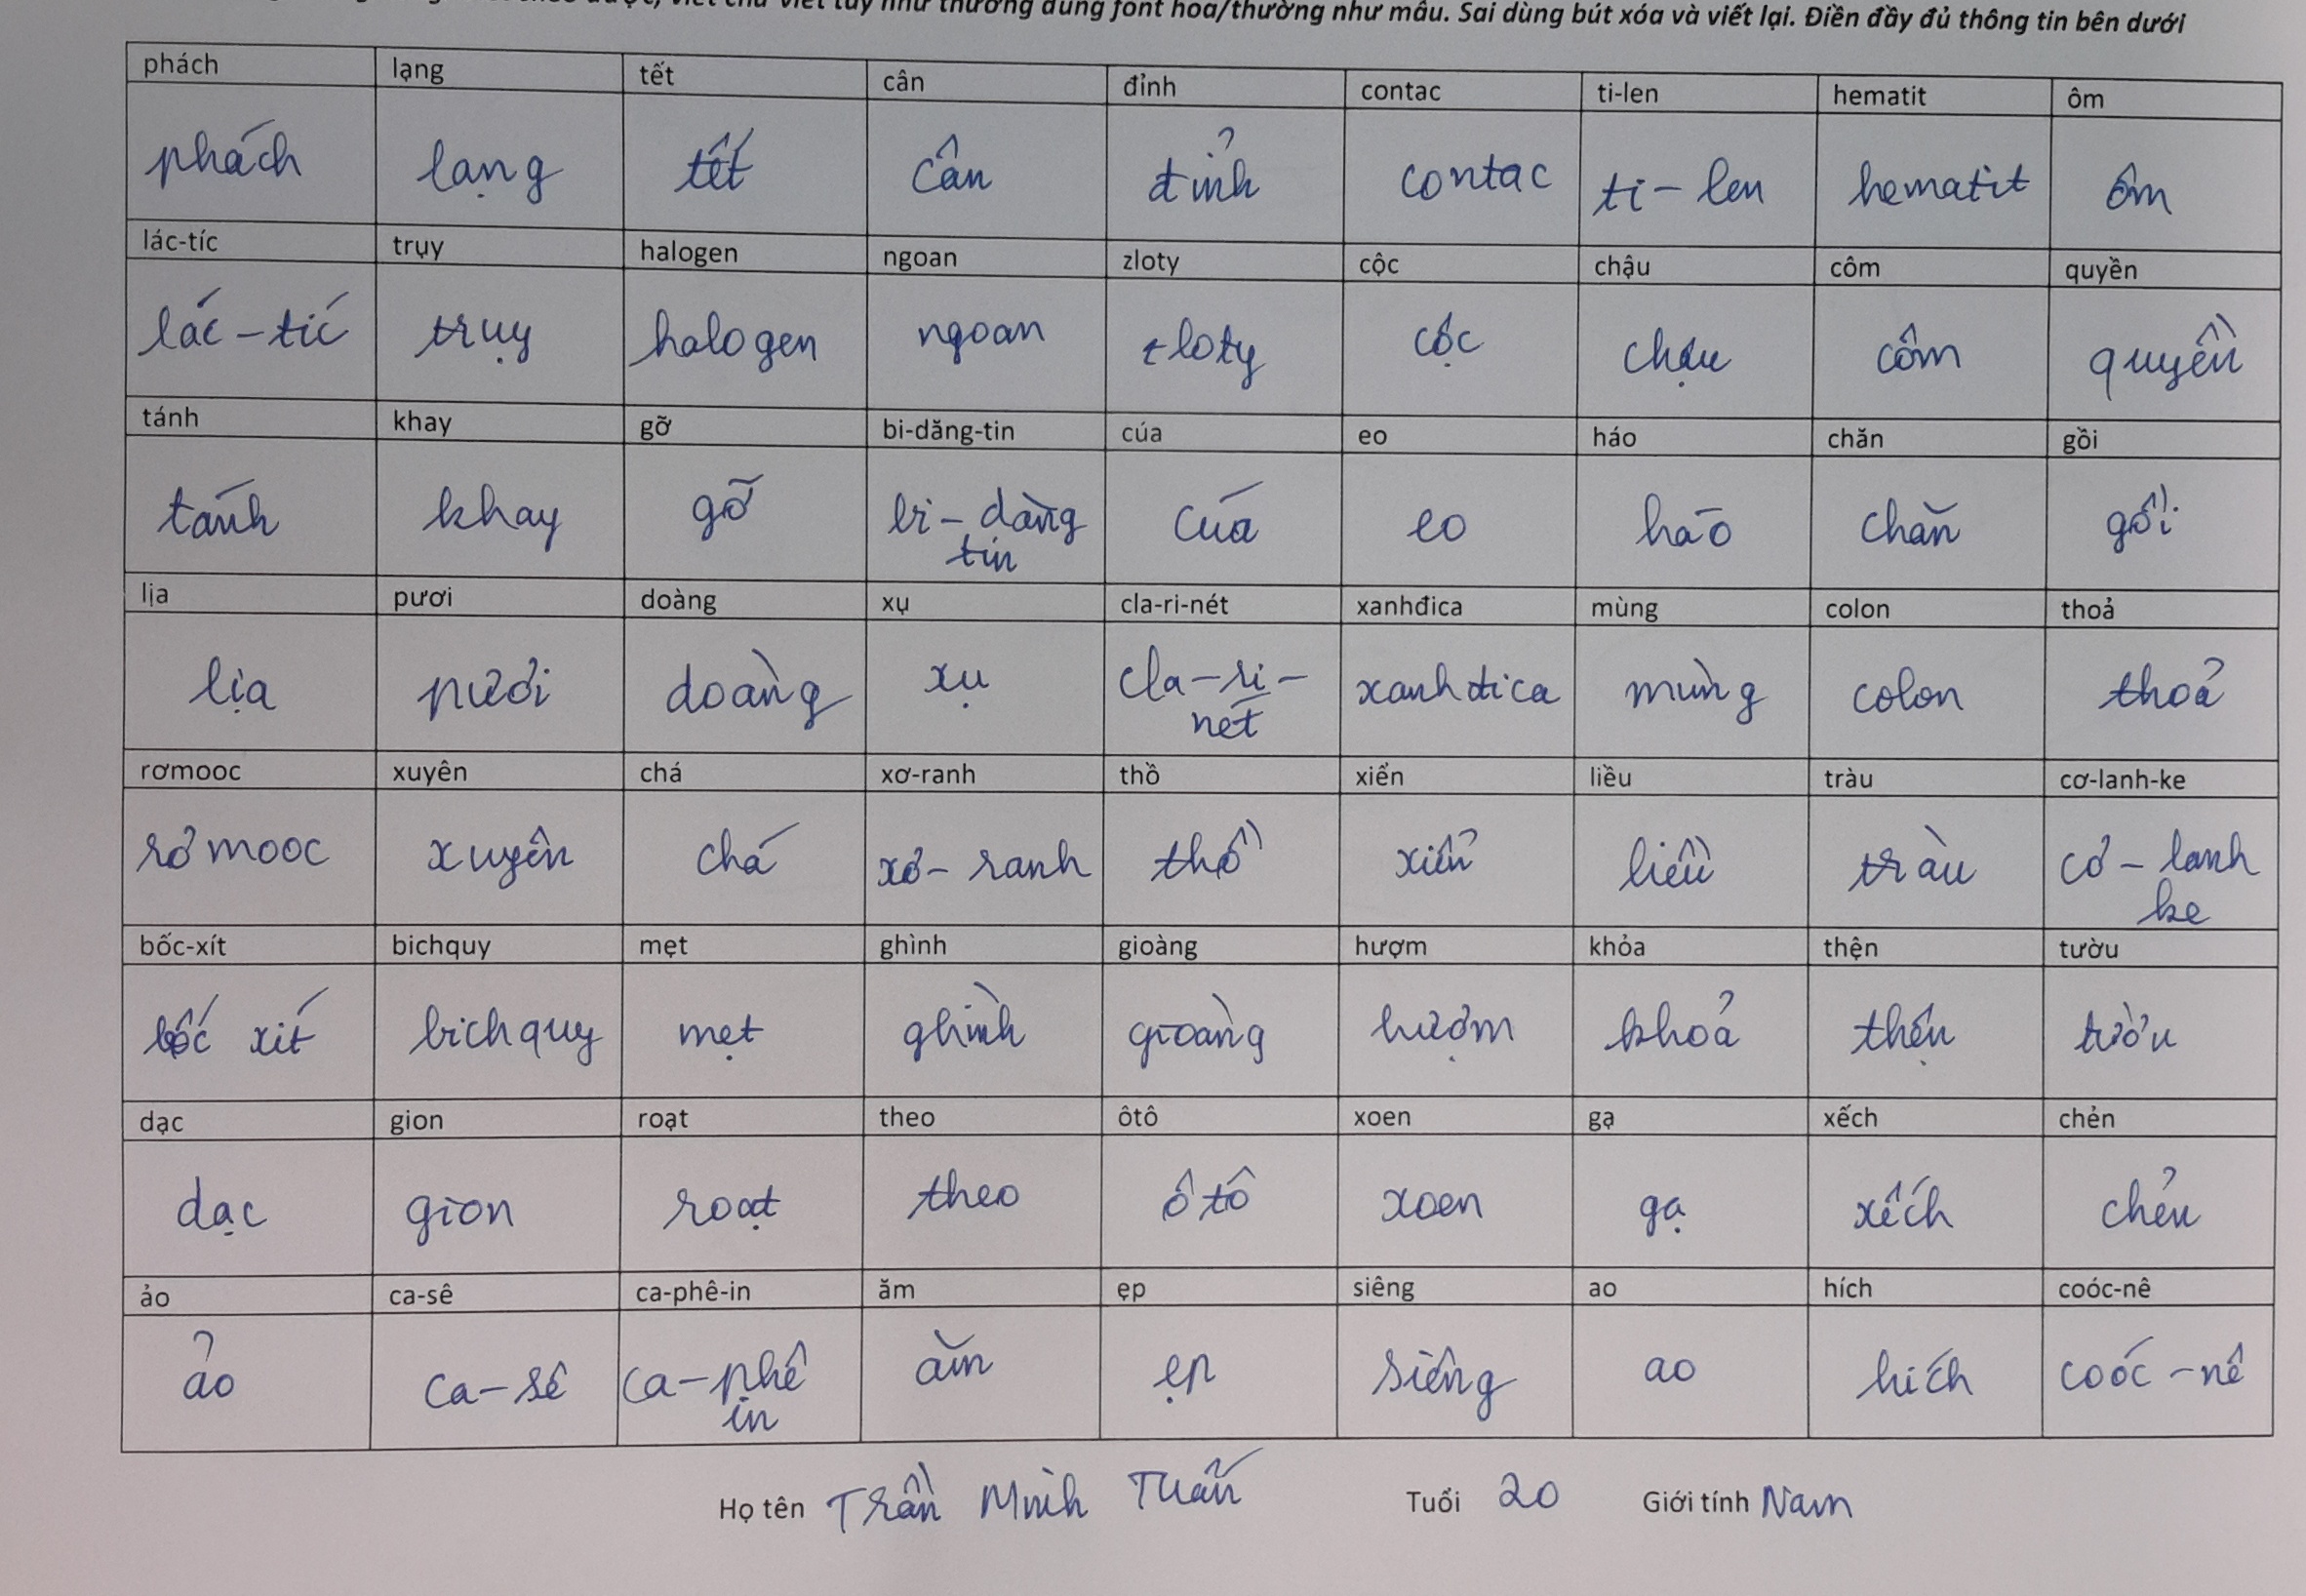 viết chữ viết tay như thường dùng font hoa/thường như mẫu. Sai dùng bút xóa và viết lại. Điền đầy đủ thông tin bên dưới
phách lạng tết cân đỉnh contac ti-len hematit ôm
phách lạng tết cân đỉnh contac ti-len hematit ôm
lác-tíc trụy halogen ngoan zloty cộc chậu côm quyền
lác-tíc trụy halogen ngoan zloty cộc chậu côm quyền
tánh khay gỡ bi-dăng-tin cúa eo háo chăn gồi
tánh khay gỡ bi-dàng cúa eo háo chăn gồi
tin
lịa pươi doàng xụ cla-ri-nét xanhđica mùng colon thoả
lịa pươi doàng xụ cla-ri- xanhđica mùng colon thoả
nét
rơmooc xuyên chá xơ-ranh thồ xiển liều tràu cơ-lanh-ke
rơmooc xuyên chá xơ-ranh thồ xiển liều tràu cơ-lanh
ke
bốc-xít bichquy mẹt ghình gioàng hượm khỏa thện tườu
bốc xít bichquy mẹt ghình gioàng hượm khoả thện tườu
dạc gion roạt theo ôtô xoen gạ xếch chẻn
dạc gion roạt theo ôtô xoen gạ xếch chẻn
ảo ca-sê ca-phê-in ăm ẹp siêng ao hích coóc-nê
ảo ca-sê ca-phê ăm ẹp siêng ao hích coóc-nê
in
Họ tên Trần Minh Tuấn Tuổi 20 Giới tính Nam